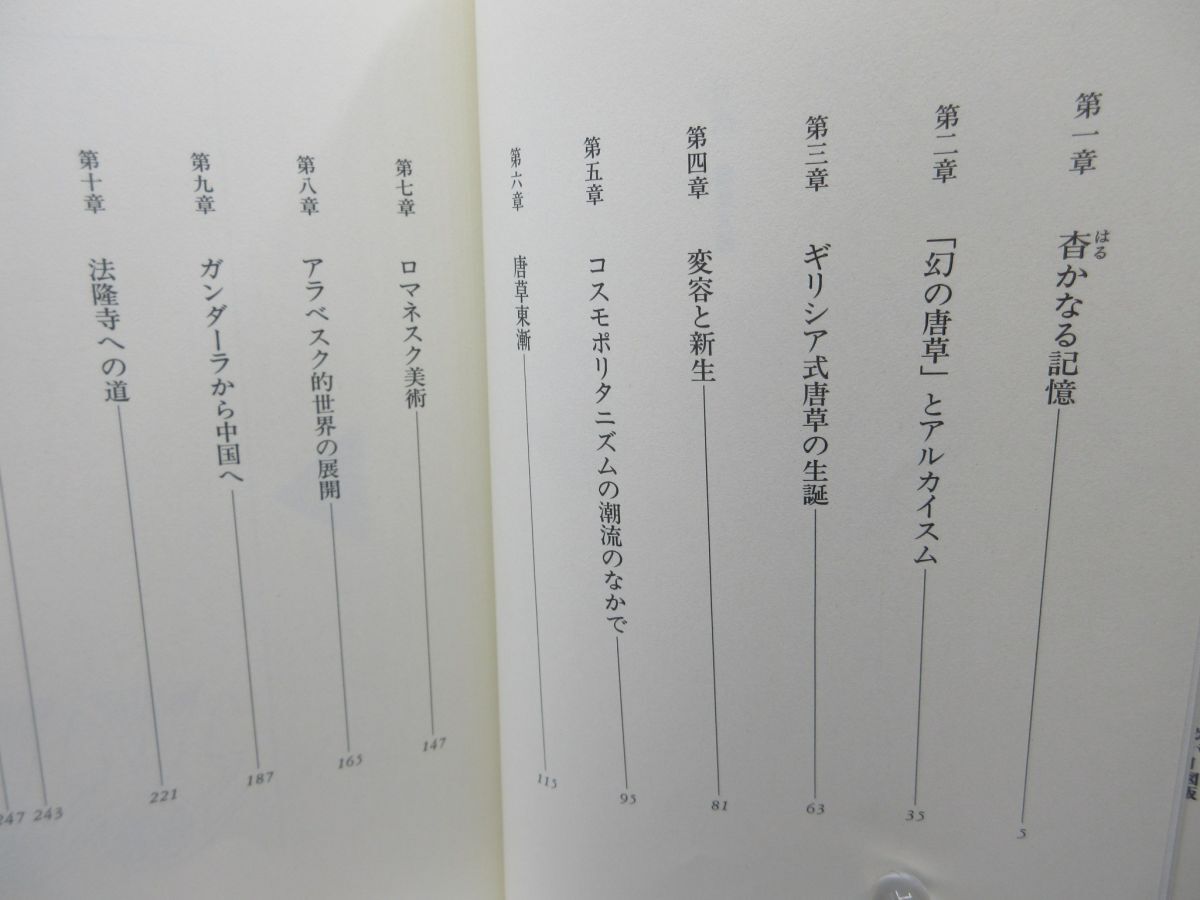 第一章 杳かなる記憶 5
はる
第二章 「幻の唐草」とアルカイスム 35
第三章 ギリシア式唐草の生誕 63
第四章 変容と新生 81
第五章 コスモポリタニズムの潮流のなかで 95
第六章 唐草東漸 115
第七章 ロマネスク美術 147
第八章 アラベスク的世界の展開 165
第九章 ガンダーラから中国へ 187
第十章 法隆寺への道 221
243
247